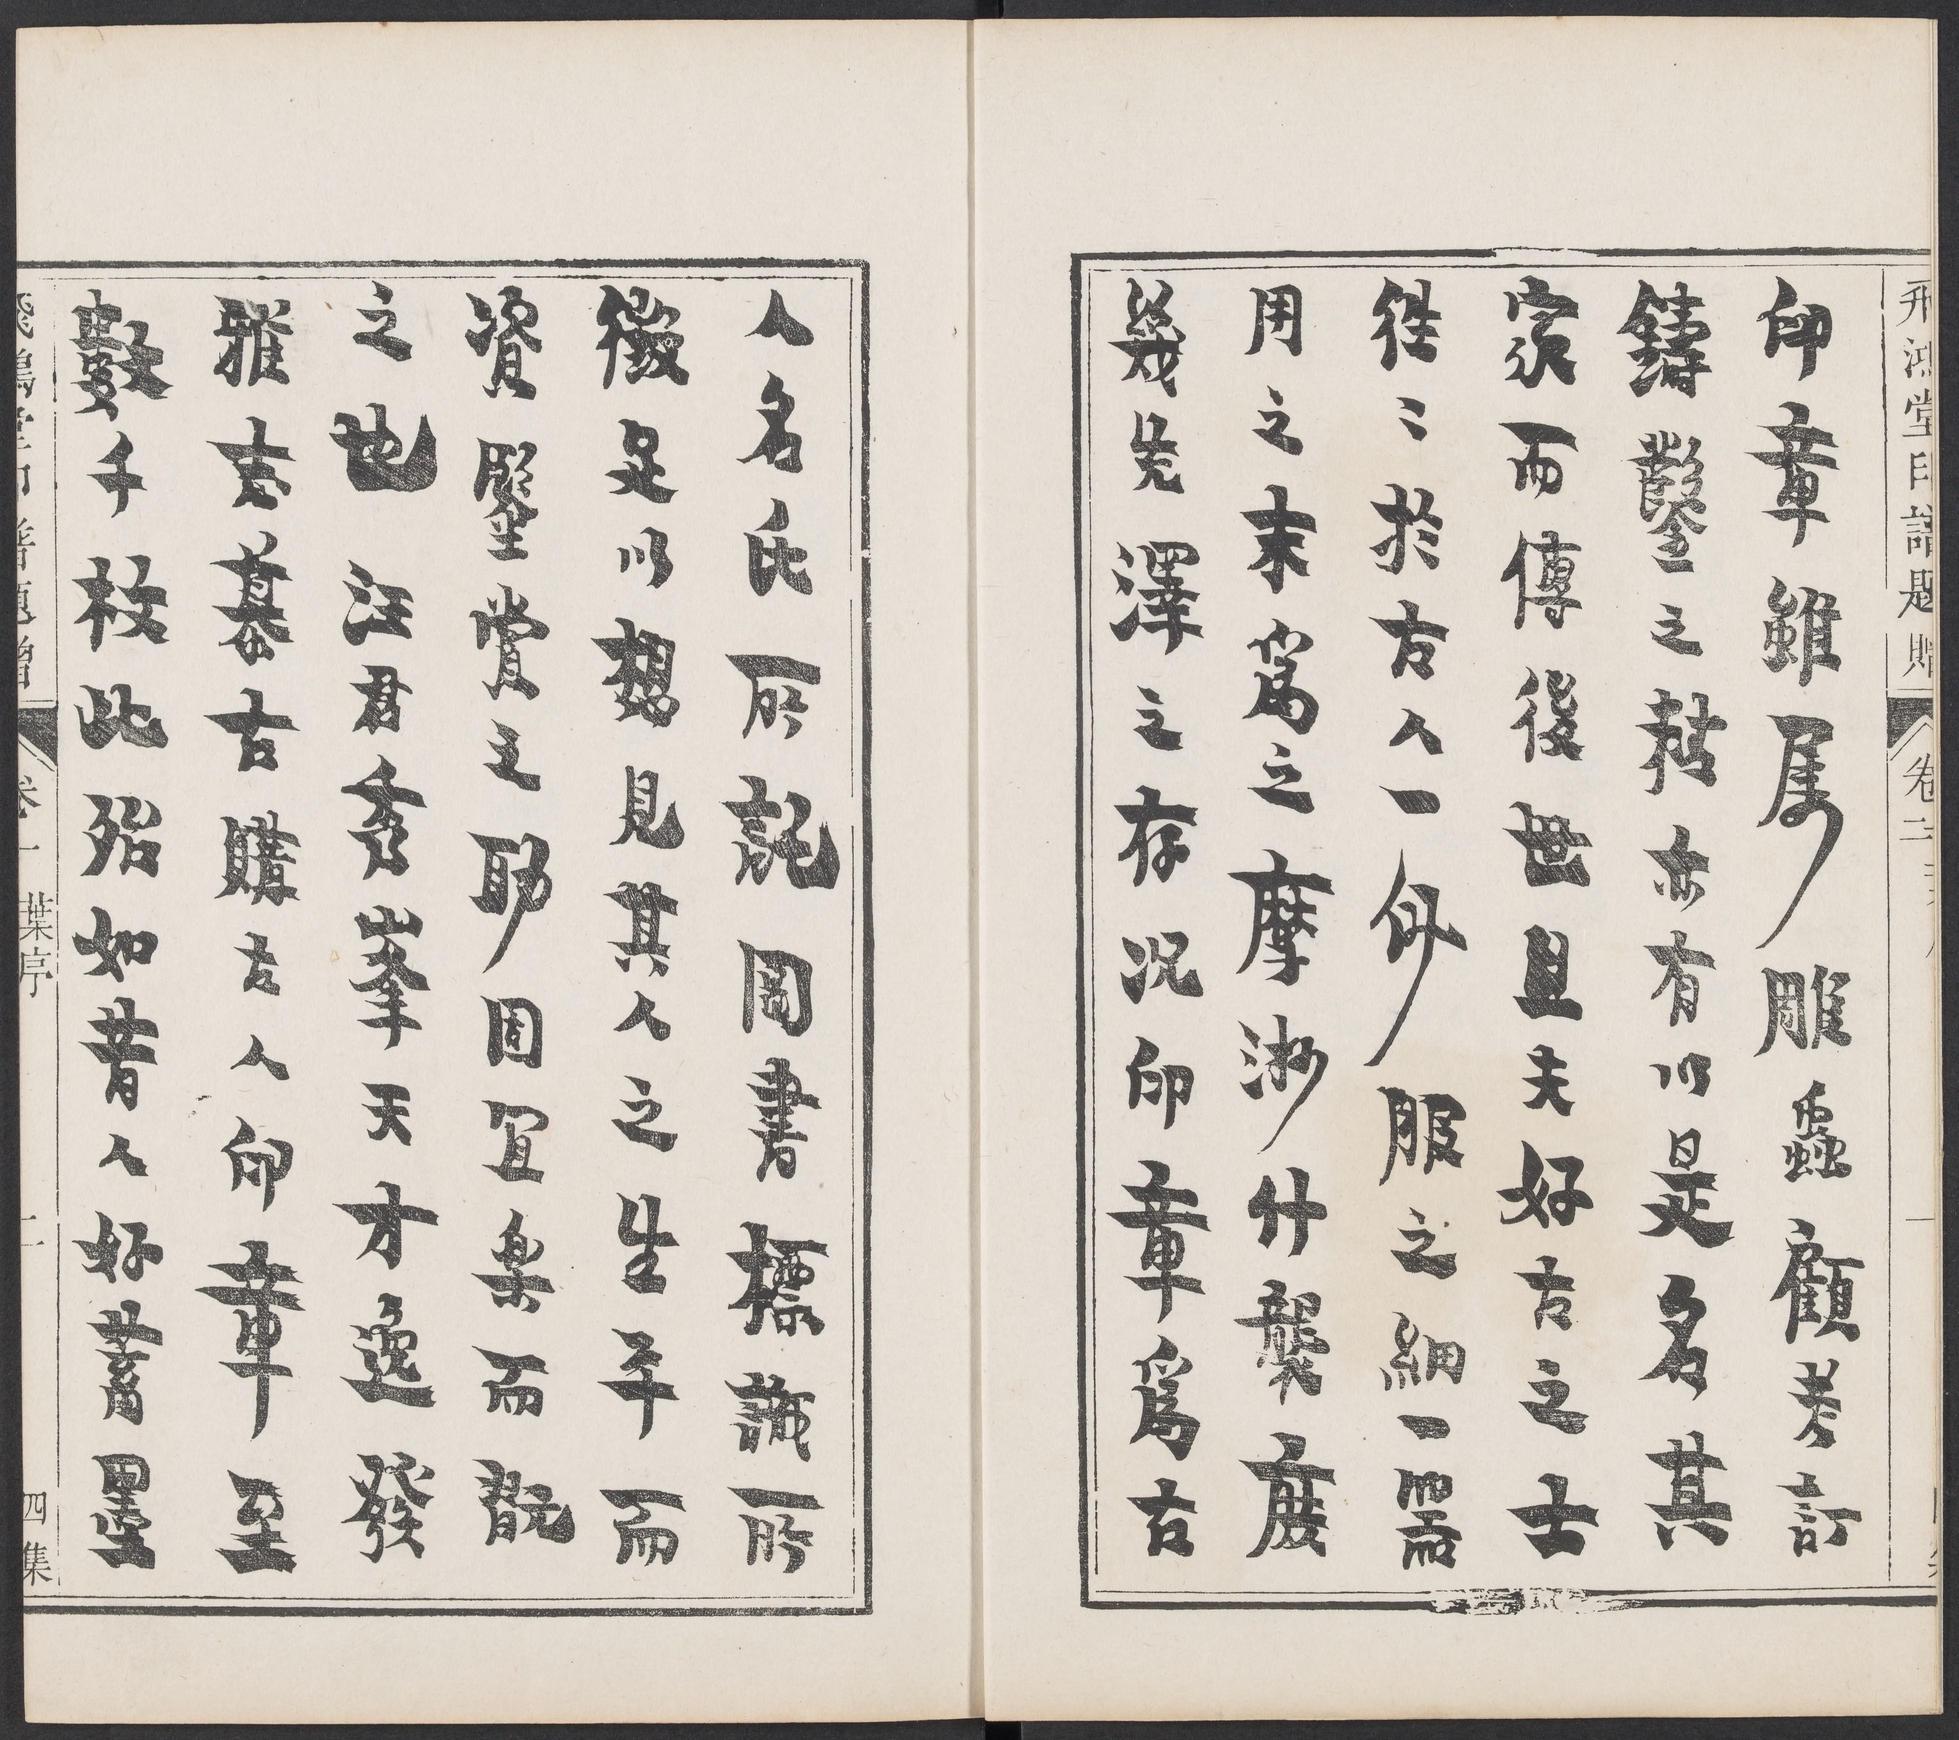 飛鴻堂印譜題贈 卷二 一
印章雖屬雕蟲顧考訂
鑄鑿之精亦有以是名其
家而傳後世且夫好古之士
往〻於古人一身服之細一器
用之末爲之摩挲什襲庶
幾先澤之存況印章爲古
人名氏所託圖書標識所
徵足以想見其人之生平而
資鑒賞之助固宜樂而翫
之也 汪君秀峯天才逸發
雅志慕古購古人印章至
數千枚此殆如昔人好蓄墨
飛鴻堂印譜題贈 卷一 葉序 二 四集